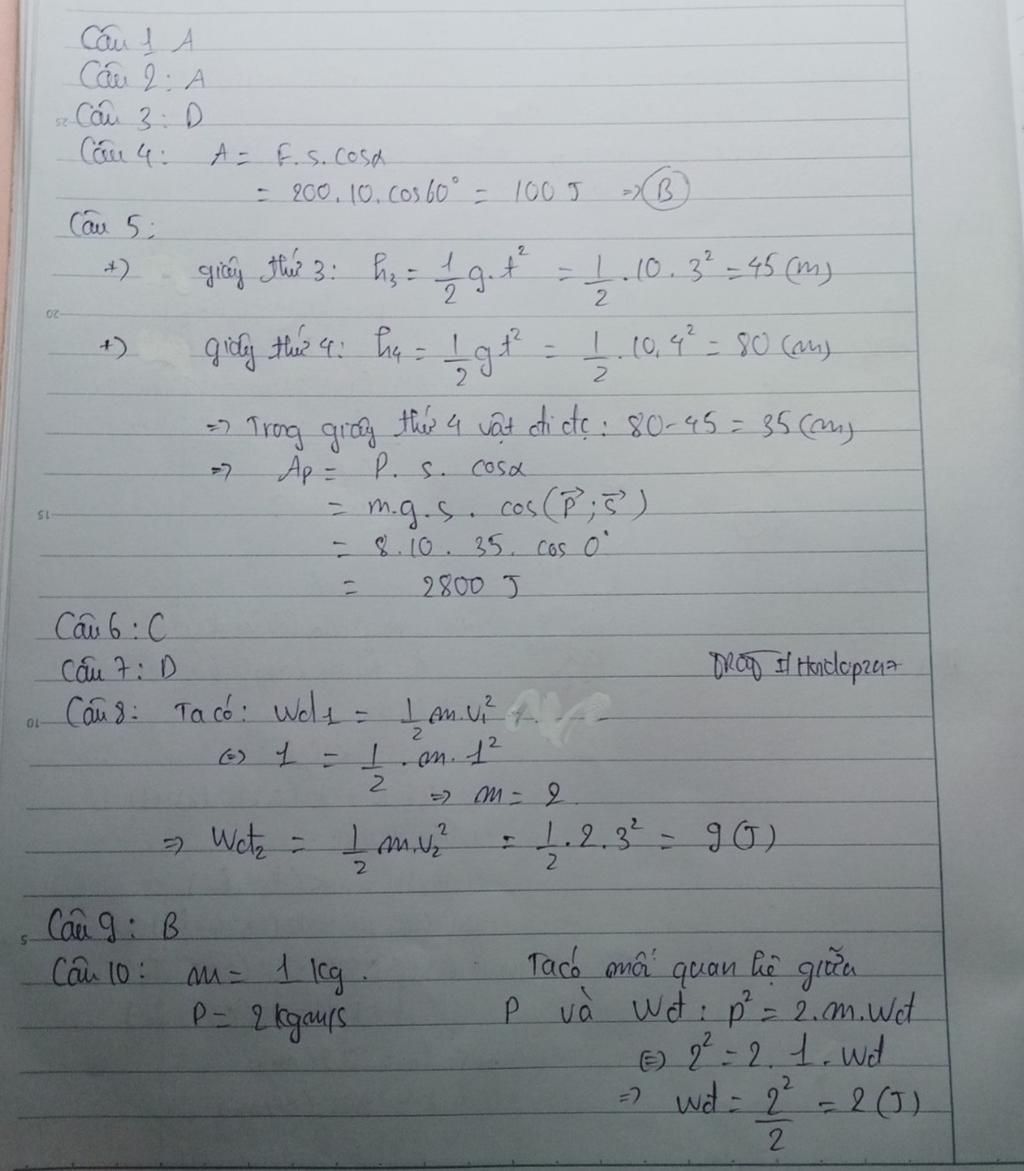 Câu 1 A
Câu 2 : A
Câu 3 : D
Câu 4 : A = F. s. cosα
= 200. 10. cos60° = 100 J => B
Câu 5 :
+) giây thứ 3 : h₃ = 1/2 g. t² = 1/2 . 10 . 3² = 45 (m)
+) giây thứ 4 : h₄ = 1/2 g t² = 1/2 . 10. 4² = 80 (m)
=> Trong giây thứ 4 vật đi đc : 80 - 45 = 35 (m)
=> Ap = P. s. cosα
= m.g.s. cos(P⃗ ; s⃗)
= 8.10 . 35. cos 0°
= 2800 J
Câu 6 : C
Câu 7 : D
Câu 8 : Ta có : Wđ₁ = 1/2 m.v₁²
<=> 1 = 1/2 . m. 1²
=> m = 2
=> Wđ₂ = 1/2 m.v₂² = 1/2 . 2. 3² = 9 (J)
Câu 9 : B
Câu 10 : m = 1 kg . Ta có mối quan hệ giữa
P = 2 kgm/s P và Wđ : p² = 2. m. Wđ
<=> 2² = 2. 1. Wđ
=> Wđ = 2²/2 = 2 (J)
25
20
15
10
5